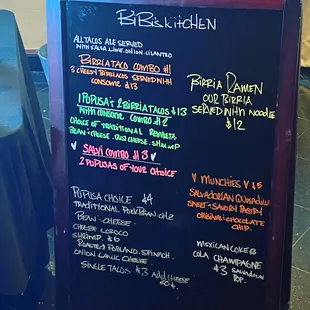 BiBi's KitCHEN
ALL TACOS ARE SERVED
WITH SALSA. LIME. ONION. CILANTRO
BIRRIA TACO COMBO #1
3 CHEESY BIRRIA TACOS SERVED WITH
CONSOME $13
1 PUPUSA & 2 BIRRIA TACOS $13
WITH CONSOME COMBO #2
CHOICE OF TRADITIONAL REVUELTA
BEAN & CHEESE.
SALVI COMBO #3
2 PUPUSAS OF YOUR CHOICE
PUPUSA CHOICE $4
TRADITIONAL PORK/BEAN CHZ
BEAN & CHEESE.
CHEESE LOROCO
SHRIMP. $6
ROASTED POBLANO. SPINACH.
ONION GARLIC CHEESE
SINGLE TACOS $3 ADD CHEESE
50¢
BIRRIA RAMEN
OUR BIRRIA
SERVED WITH NOODLE
$12
MUNCHIES $5
SALVADORIAN QUESADILLA
SWEET & SAVORY PASTRY
ORIGINAL & CHOCOLATE
CHIP.
MEXICAN COKE &
COLA CHAMPAGNE
$3 SALVADORIAN
POP.